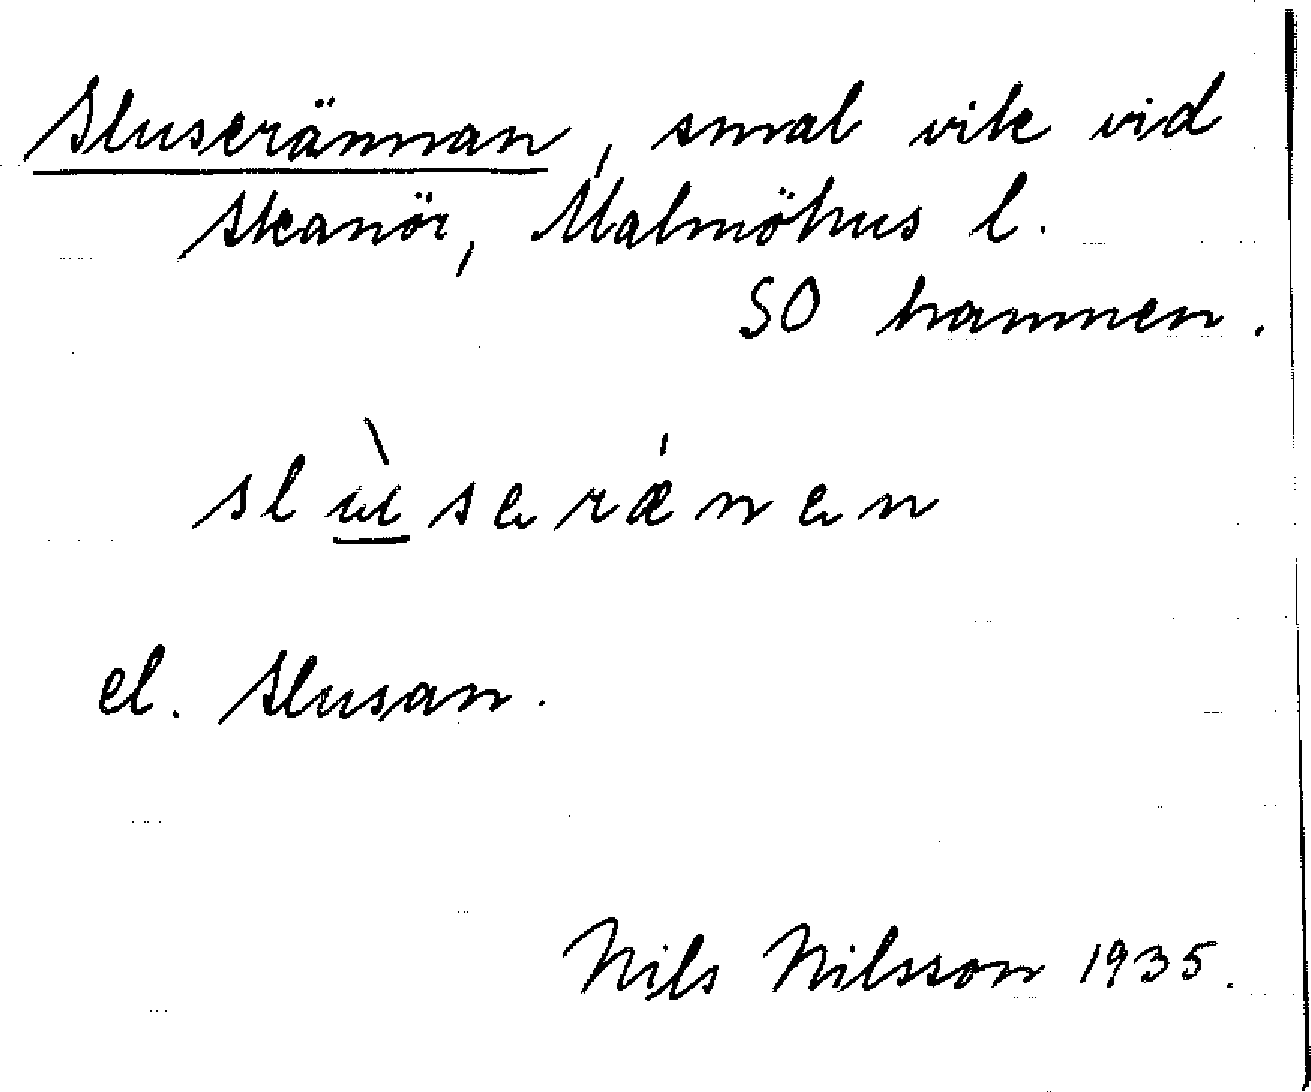 Sluserännan, smal vik vid
Skanör, Malmöhus l.
SO hamnen.
slùserǽnen
el. Slusan.
Nils Nilsson 1935.